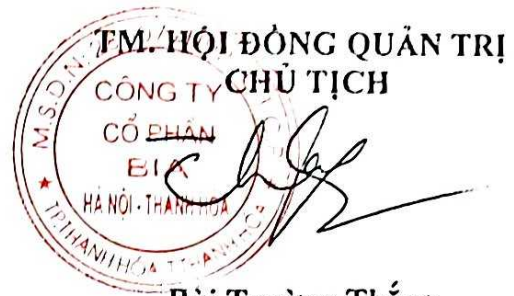 TM. HỘI ĐỒNG QUẢN TRỊ
CHỦ TỊCH
M.S.D.N:
CÔNG TY
CỔ PHẦN
BIA
HÀ NỘI - THANH HÓA
TP.THANH HÓA T.THANH HÓA